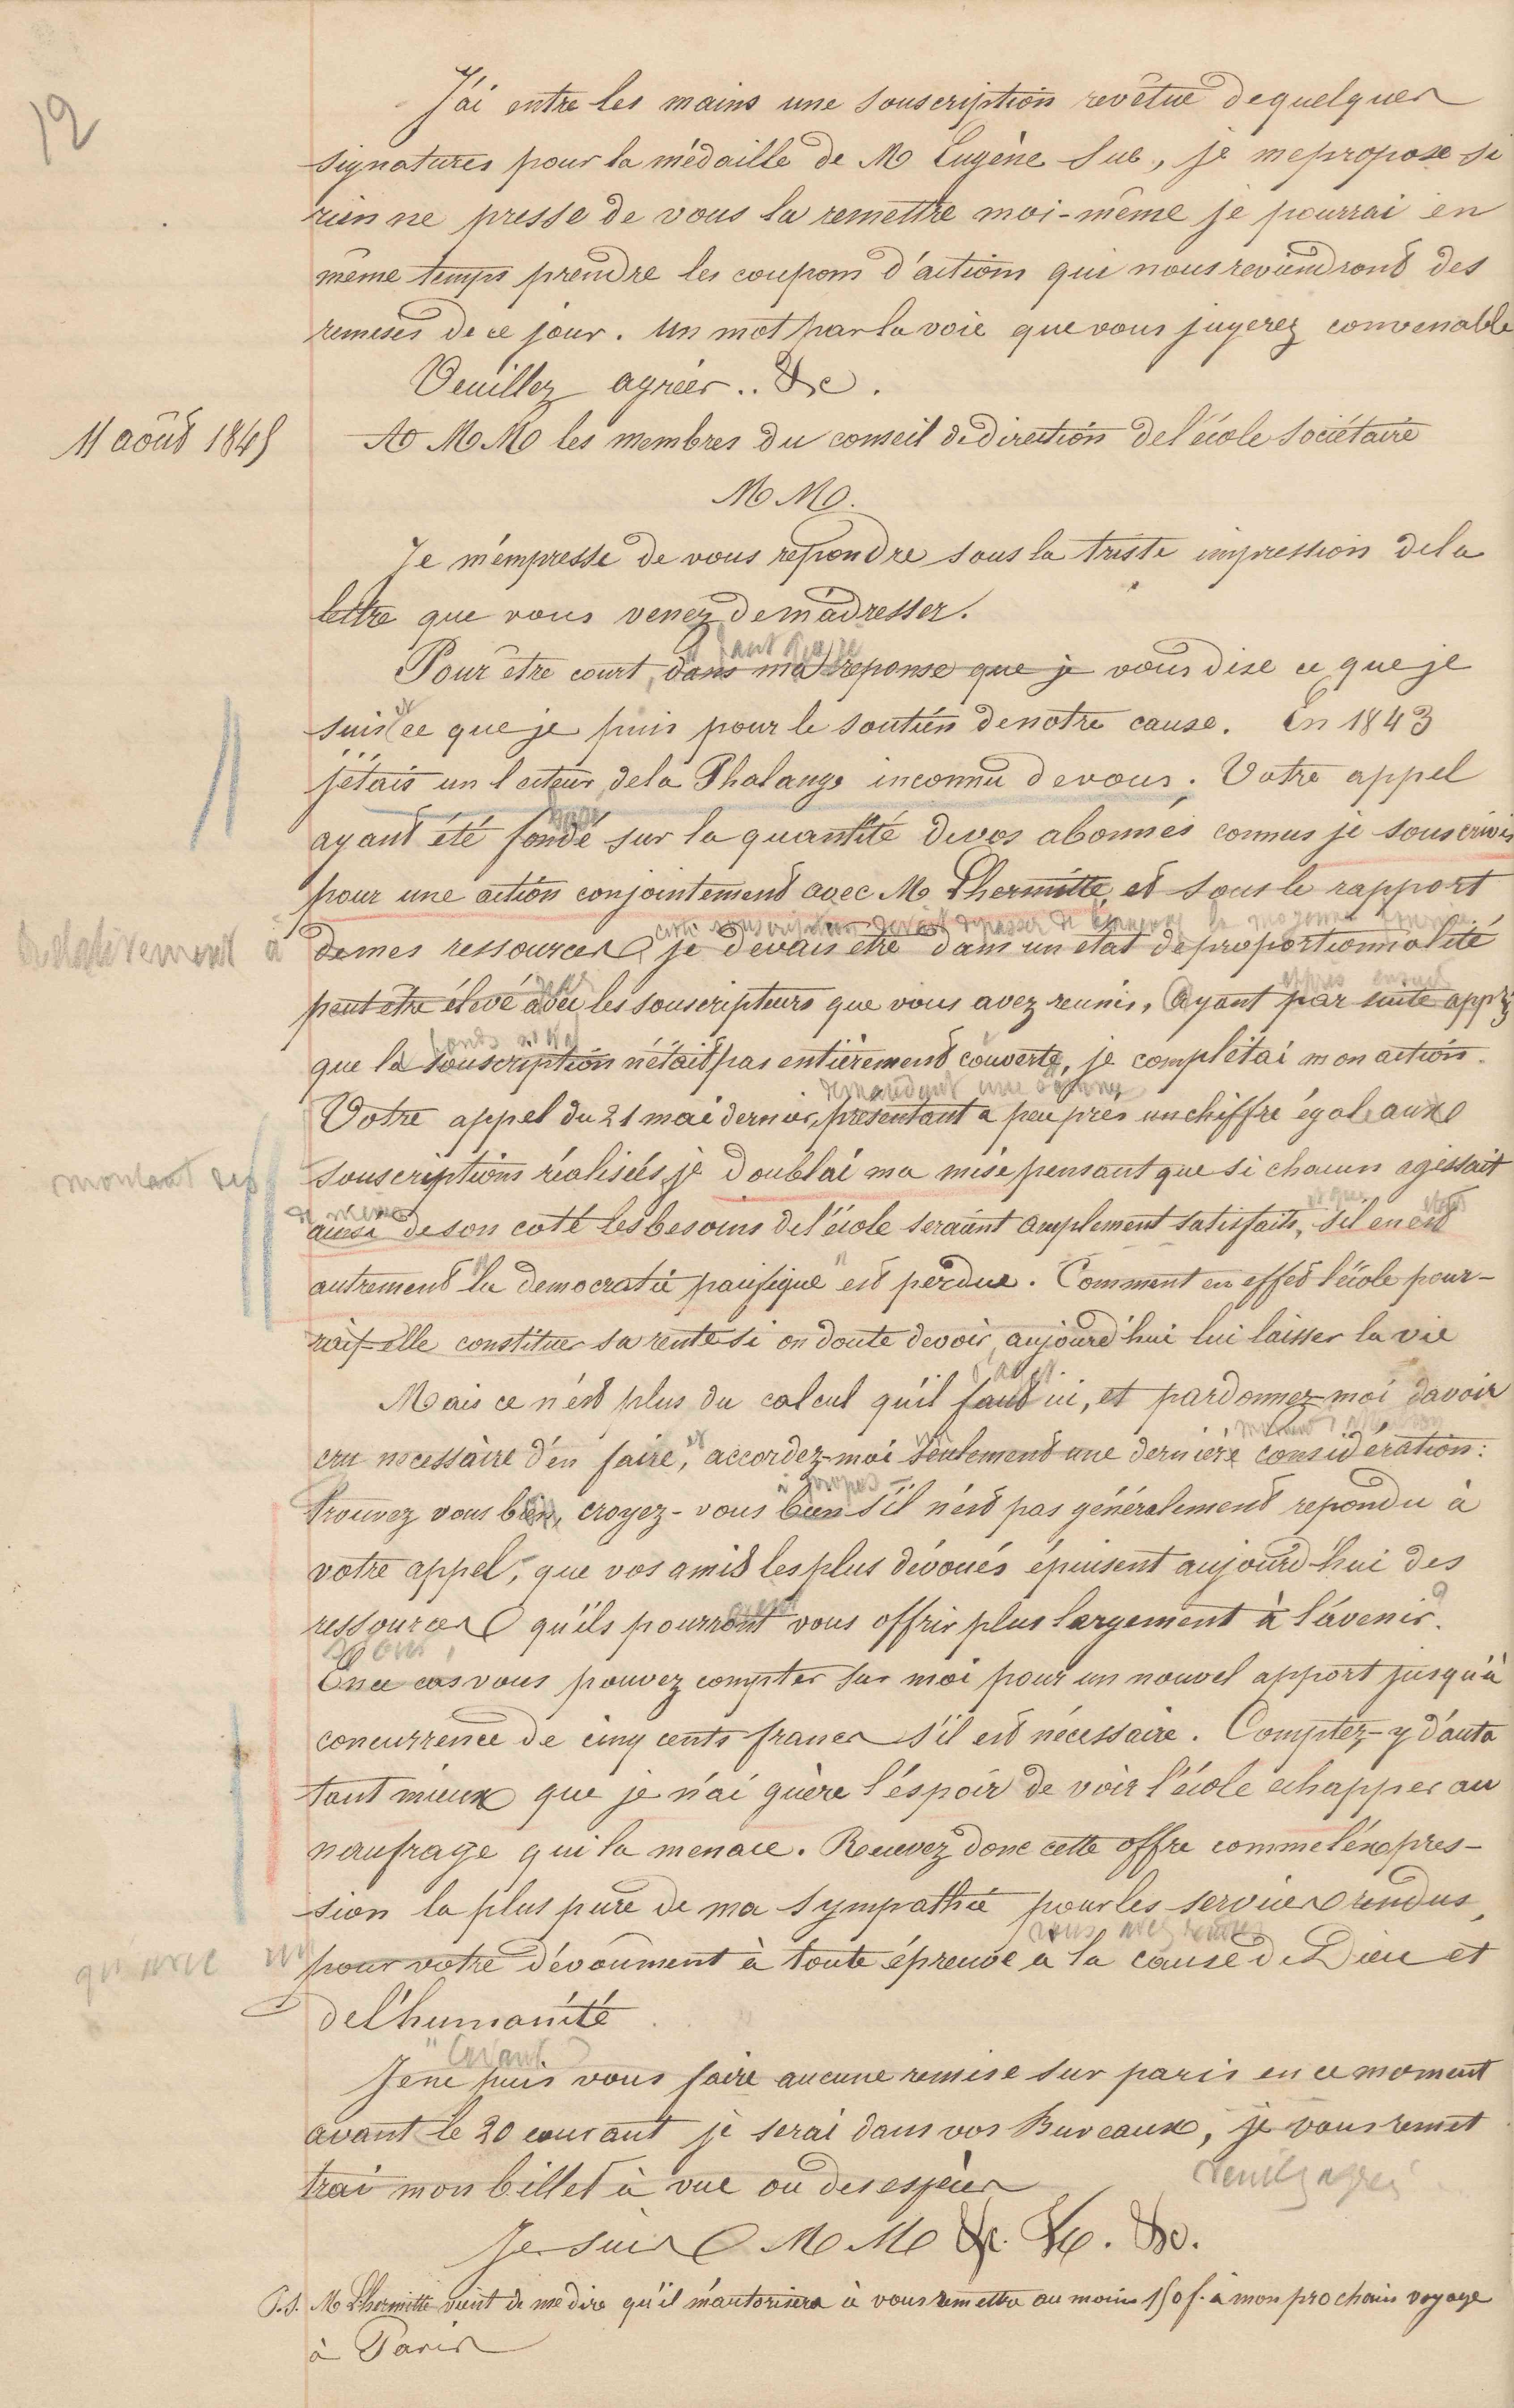 12
J'ai entre les mains une souscription revêtue de quelques
signatures pour la médaille de M Eugène Sue, je me propose si
rien ne presse de vous la remettre moi-même je pourrai en
même temps prendre les coupons d'actions qui nous reviendront des
remeses de ce jour. Un mot par la voie que vous jugerez convenable
Veuillez agréer .. &c.
11 août 1845
A MM les membres du conseil de direction de l'école sociétaire
MM.
Je m'empresse de vous repondre sous la triste impression de la
lettre que vous venez de m'adresser.
il faut que je
Pour être court, dans ma reponse que je vous dise ce que je
suis et ce que je puis pour le soutien de notre cause. En 1843
j'étais un lecteur de la Phalange inconnu de vous. Votre appel
ayant été fondé sur la quantité de vos abonnés connus je souscrivis
pour une action conjointement avec M Lhermitte, et sous le rapport
cette souscription devait dépasser de la moyenne
relativement à
de mes ressources je devais être dans un état de proportionnalité
peut etre élevé avec les souscripteurs que vous avez reunis, Ayant par suite appris
fonds
que la souscription n'était pas entièrement couverte, je complétai mon action.
demandant une somme
Votre appel du 21 mai dernier, présentant a peu près un chiffre égal aux
montant des
souscriptions réalisées, je doublai ma mise pensant que si chacun agissait
de même
ainsi de son coté les besoins de l'école seraient amplement satisfaits, s'il en est
autrement "la democratie pacifique" est perdue. Comment en effet l'école pour-
rait-elle constituer sa rente si on doute devoir aujourd'hui lui laisser la vie
Mais ce n'est plus du calcul qu'il faut ici, et pardonnez-moi d'avoir
cru necessaire d'en faire, et accordez-moi seulement une dernière considération:
à propos
Trouvez vous bien, croyez-vous bien s'il n'est pas généralement repondu à
votre appel, que vos amis les plus dévoués épuisent aujourd'hui des
ressources qu'ils pourront vous offrir plus largement à l'avenir?
En ce cas vous pouvez compter sur moi pour un nouvel apport jusqu'à
concurrence de cinq cents francs s'il est nécessaire. Comptez-y d'auta
tant mieux que je n'ai guère l'espoir de voir l'école echapper au
naufrage qui la menace. Recevez donc cette offre comme l'expres-
sion la plus pure de ma sympathie pour les services rendus,
vous avez rendus
pour votre dévoûment à toute épreuve a la cause de Dieu et
de l'humanité
Je ne puis vous faire aucune remise sur paris en ce moment
avant le 20 courant je serai dans vos Bureaux, je vous remet
trai mon billet à vue ou des espèces
Je suis MM &c. &c. &c.
P.S. M Lhermitte vient de me dire qu'il m'autorisera à vous remettre au moins 150 f. à mon prochain voyage
à Paris